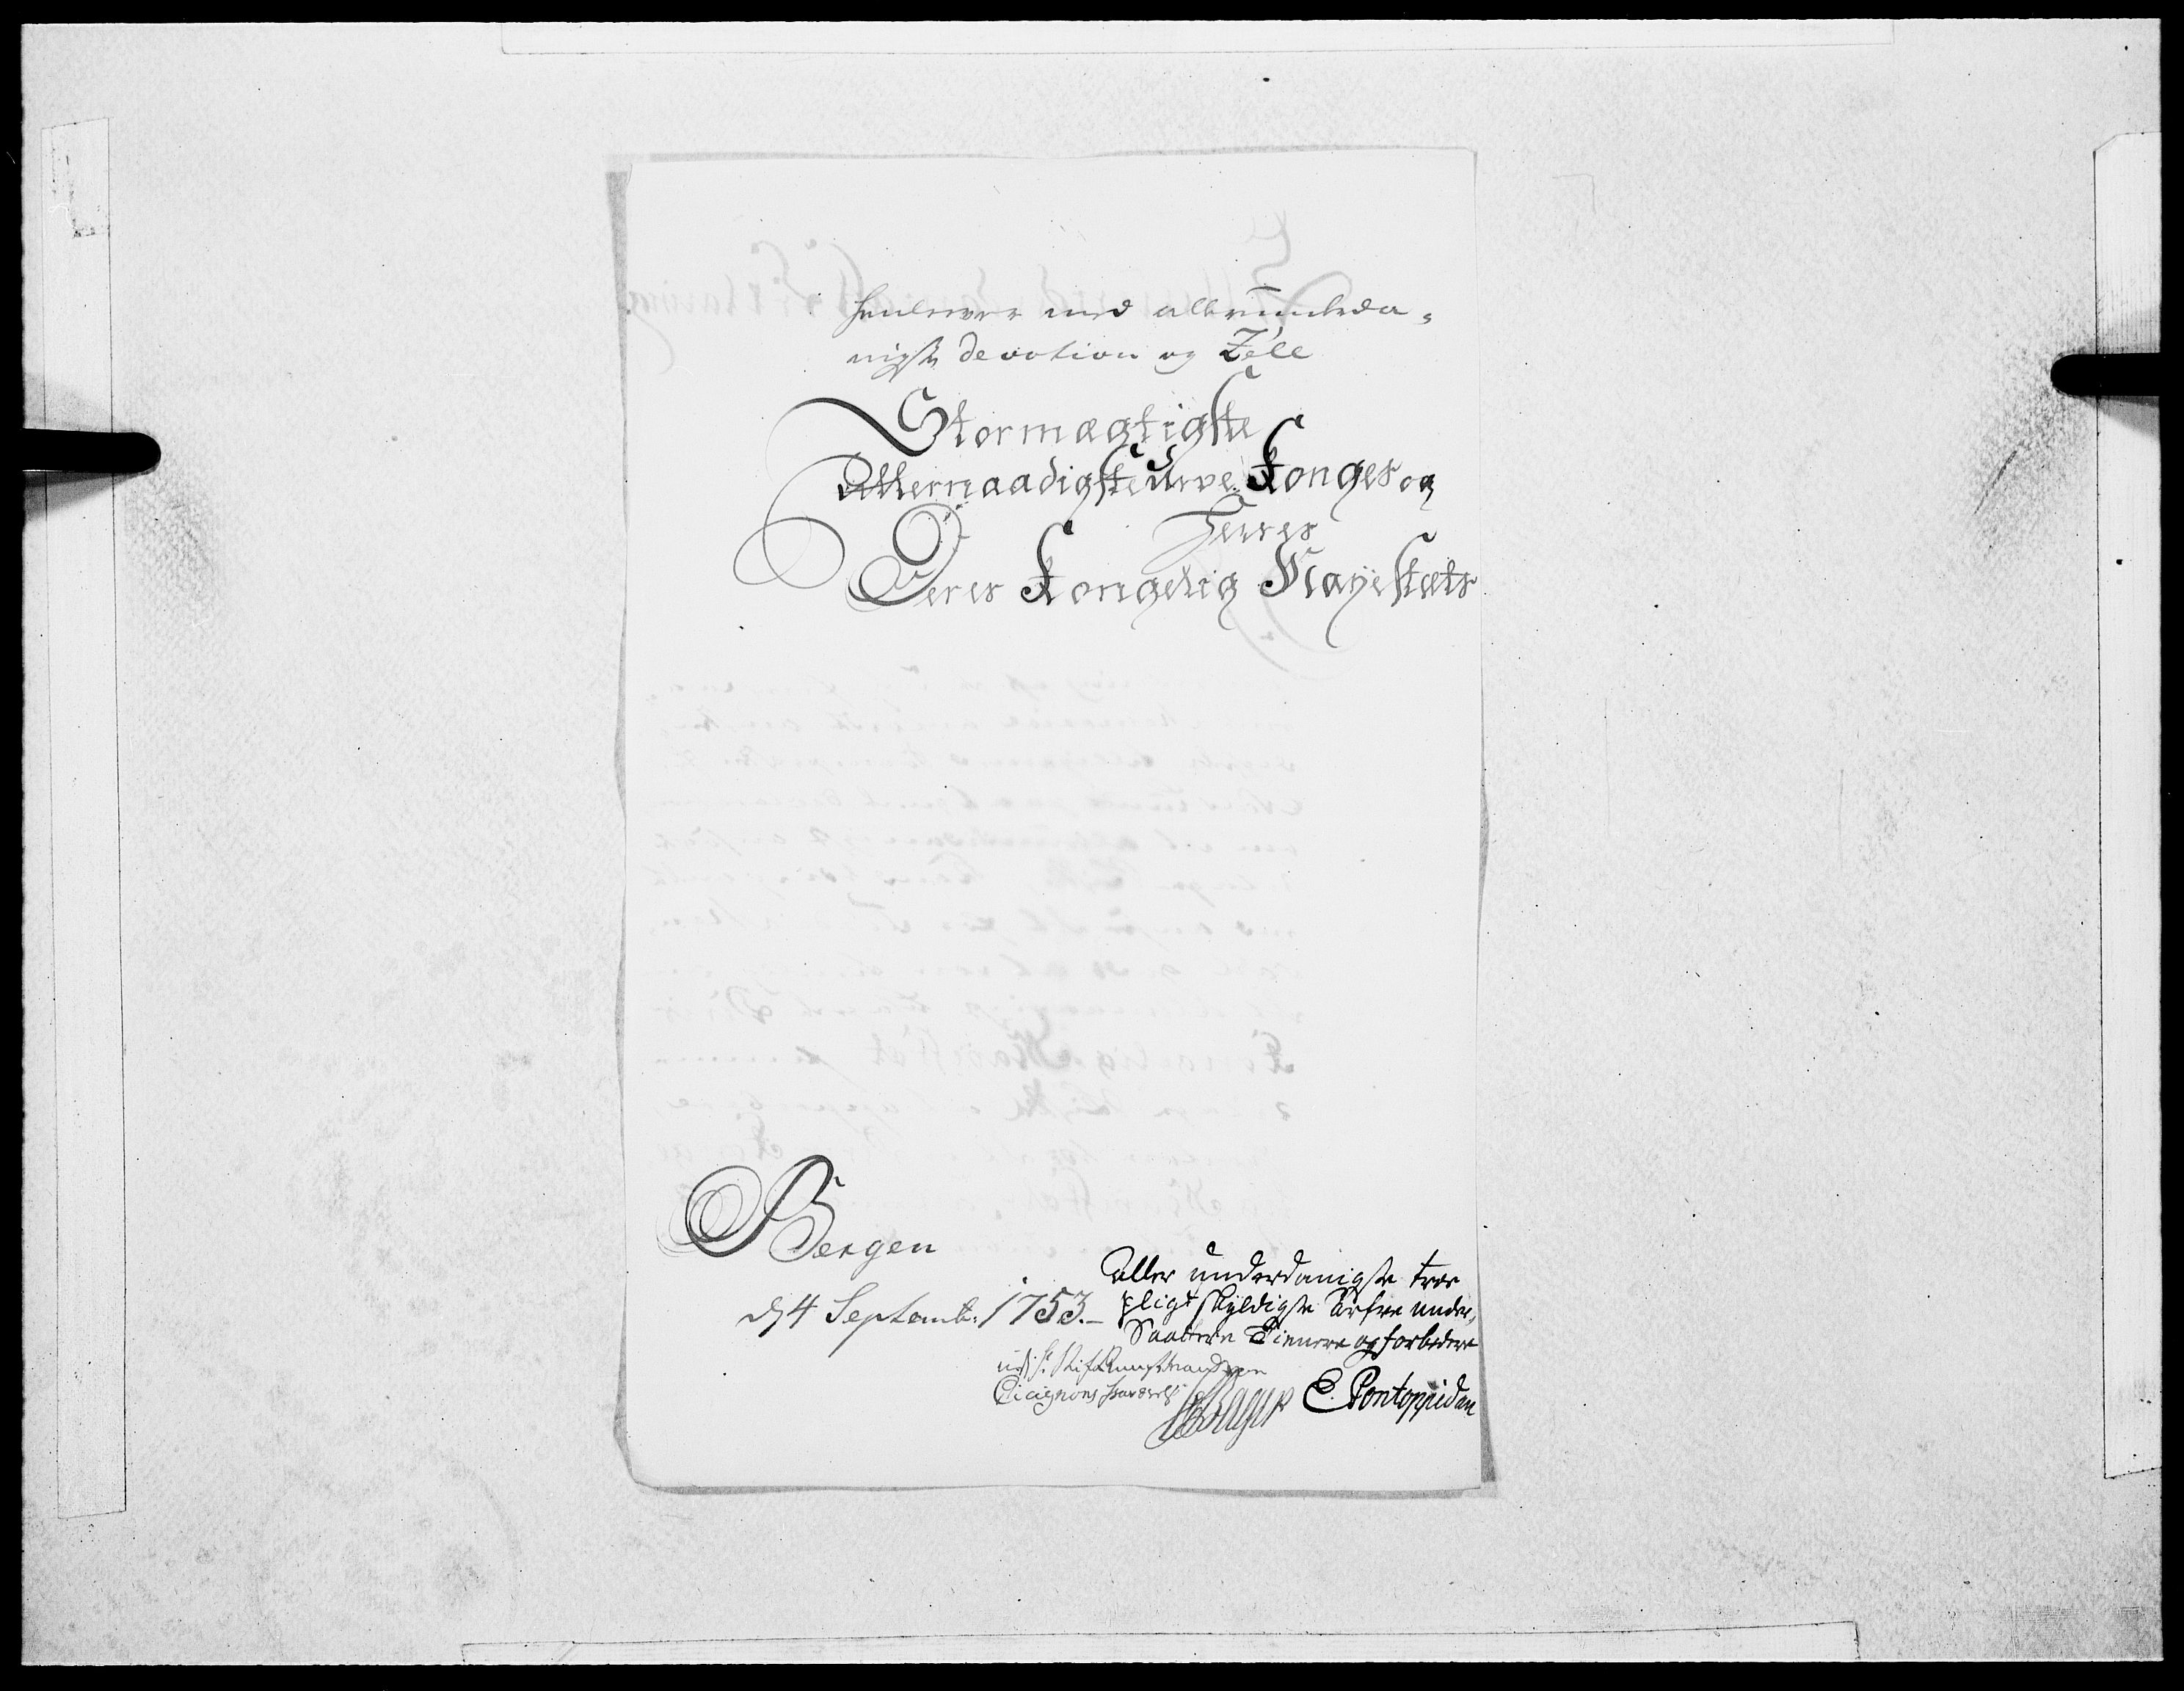 henlever med allerunderda-
nigste devotion og Zele
Stormægtigste
Allernaadigste Arve Konges og
Herres
Deres Kongelig Mayestæts
Bergen
d 4 Septemb: 1753.-
Aller underdanigste troe
pligt skyldigste Arfve under,
Saattere Tienere og forbedere
Cicignons
E. Pontoppidan